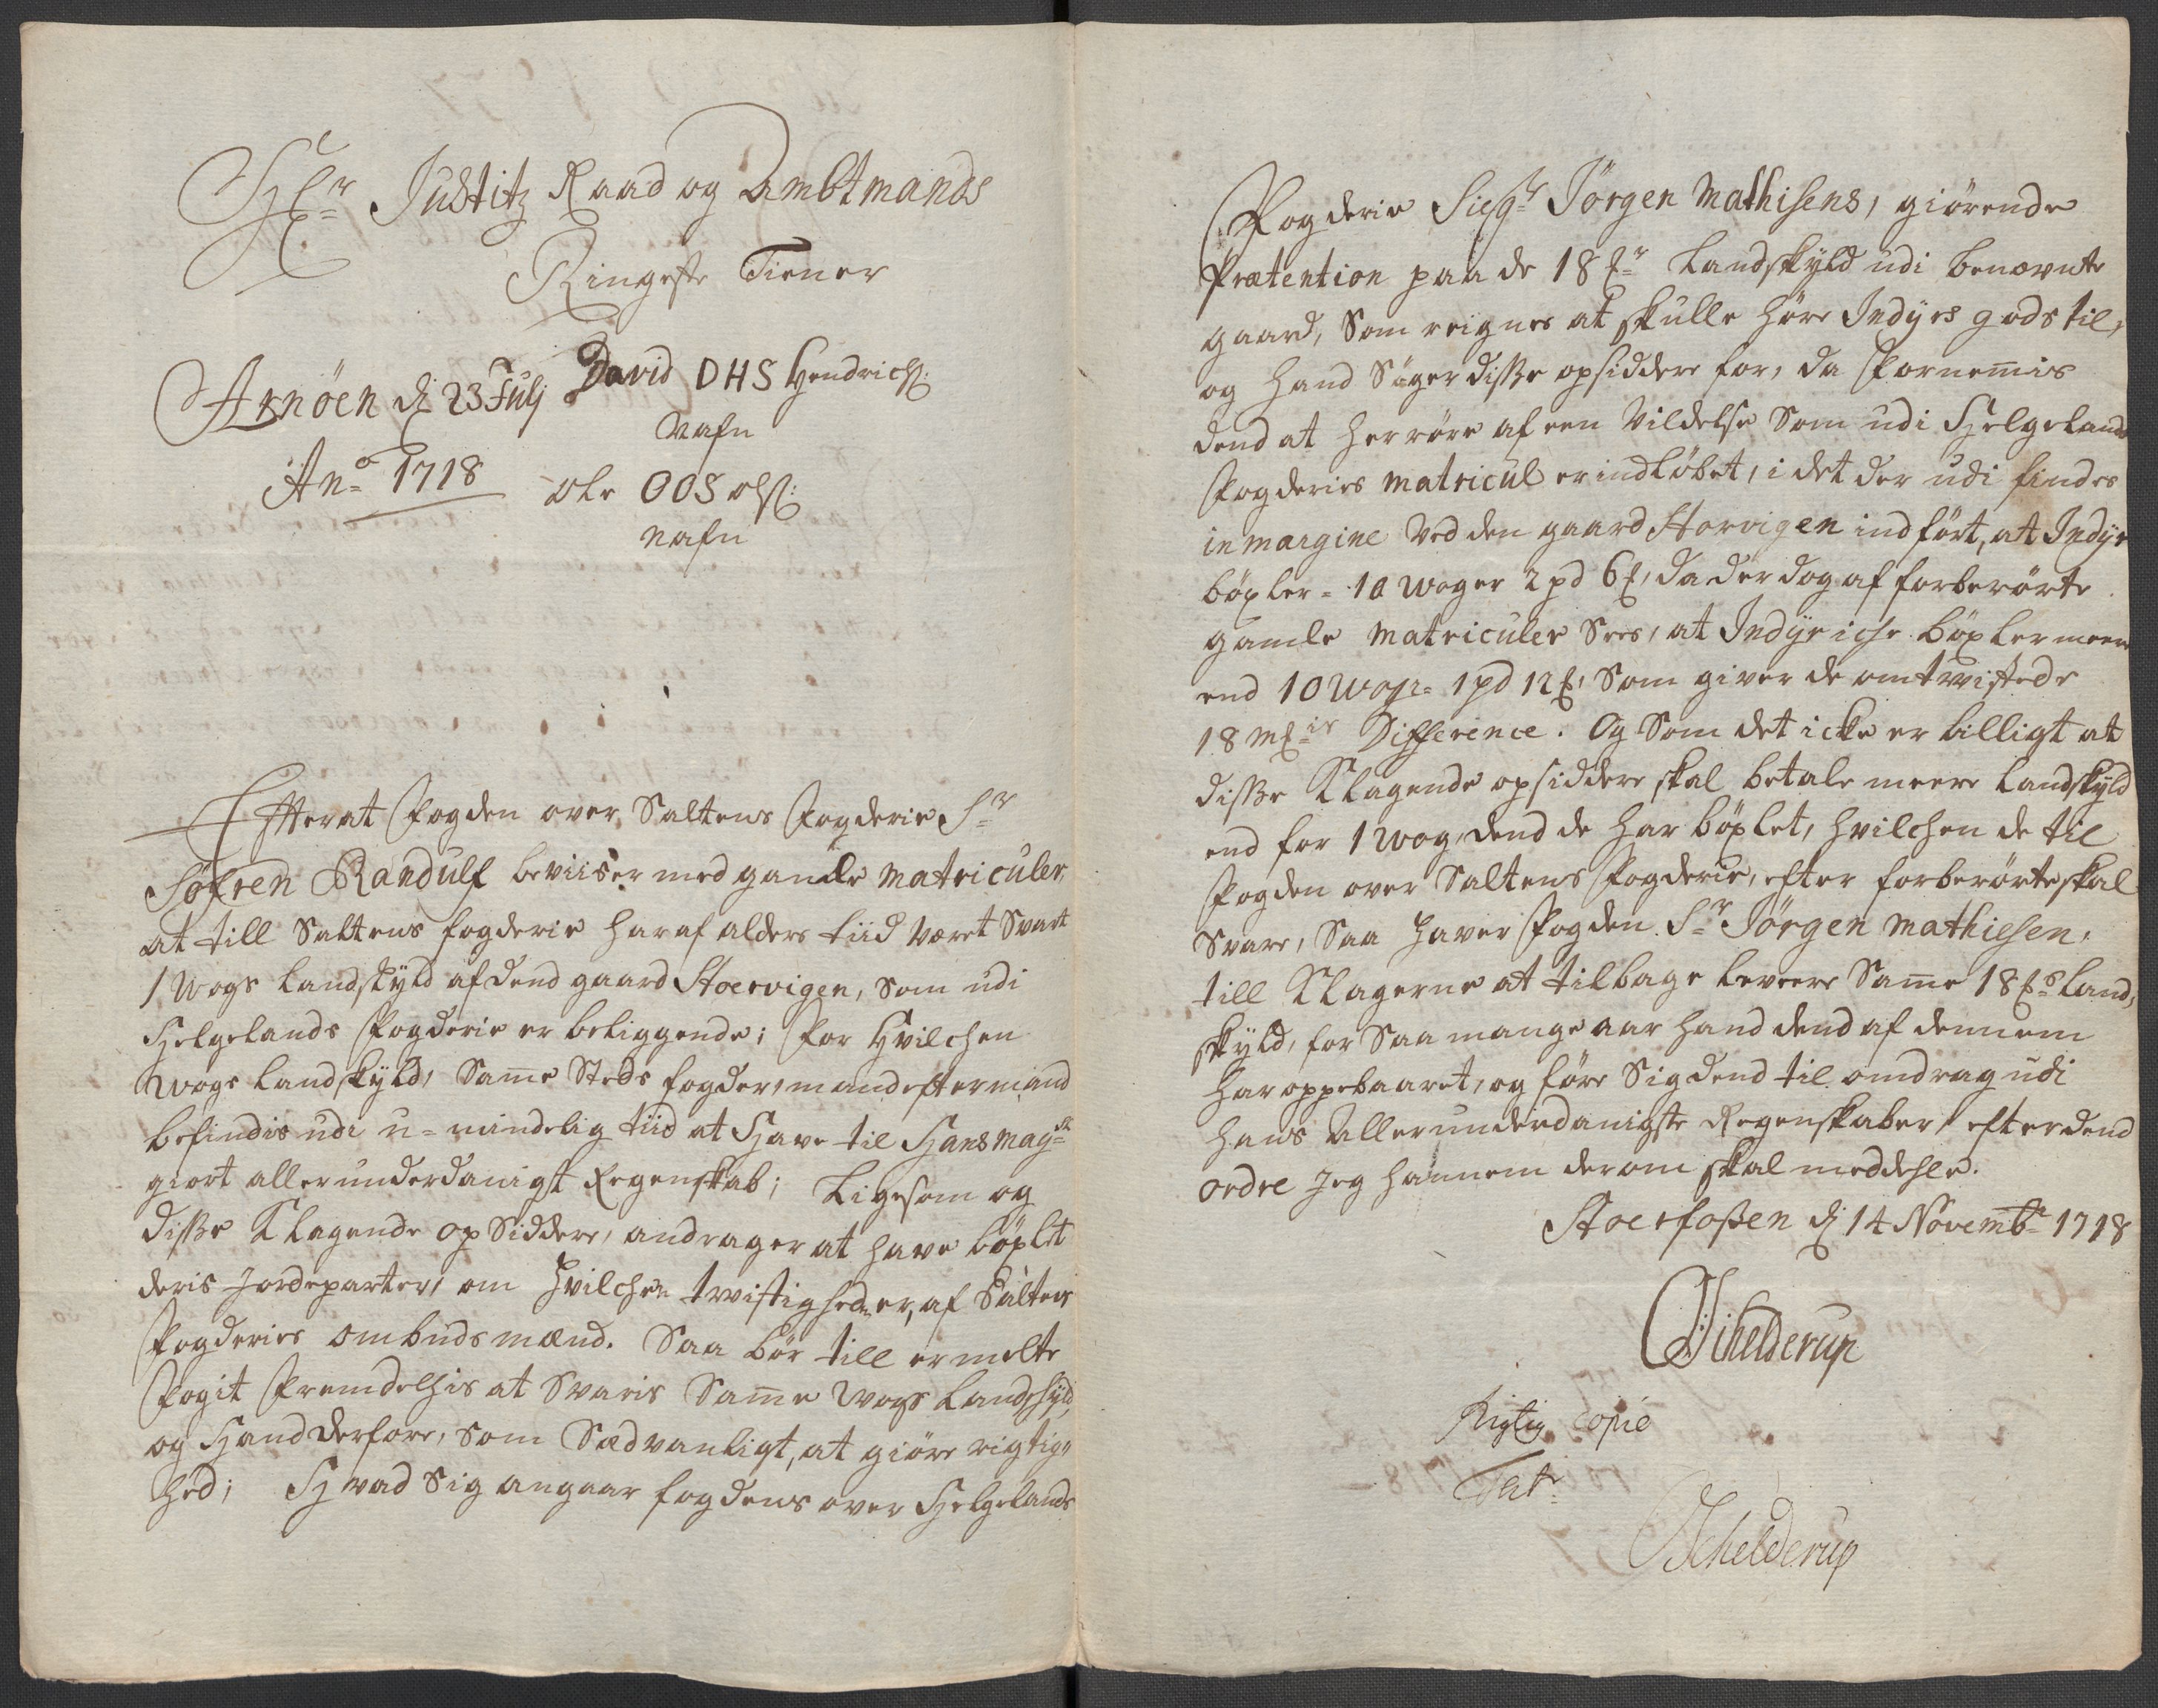 Hr Justitz Raad og Ambtmands
Ringeste Tiener
Arnöen d 23 Julj
David DHS Hendrichs:
Nafn
Ano 1718
Ole OOS ols:
nafn
Efter at fogden over Saltens fogderie Sr
Söfren Randulf beviiser med gamle matriculer,
at till Saltens fogderie har af alders tiid været Svart
1 Wogs Landskyld af dend gaard Stoervigen, som udi
Helgelands fogderie er beliggende; for Hvilchen
Wogs Landskyld, Samme Steds fogder, mand efter mand
befindis udi u-mindelig tiid at Have til Hans Mayst
giort allerunderdanigst Regenskab; Ligesom og
disse Klagende opsiddere, andrager at have böxlet
deris Jordeparter, om Hvilchen twistigheden er, af Saltens
fogderies ombudsmænd. Saa bör till ermelte
fogit fremdelis at Svaris Samme Wogs Landskyld,
og Hand derfore, som Sædvanligt, at giöre rigtig-
hed; Hvad Sig angaar fogdens over Helgelands
Fogderie Siegr Jörgen Mathisens, giörende
Prætention paa de 18 Landskyld udi benævnte
gaard, Som reignes at skulle höre Indyrs gods til,
og Hand Söger disse opsiddere for, da fornemmis
dend at herröre af een Vildelse Som udi Helgelands
fogderies matricul er indlöbet, i det der udi findes
in margine ved den gaard Storvigen indfört, at Indyr
böxler = 10 woger 2 pd 6, da der dog af forberörte
gamle matriculer Sees, at Indyr iche böxler meere
end 10 wogr = 1 pd 12, Som giver de omtwistede
18 Difference. Og Som det icke er billigt at
disse Klagende opsiddere skal betale meere Landskyld
end for 1 wog, dend de har böxlet, hvilchen de til
fogden over Saltens fogderie, efter forberörte skal
Svare, Saa haver fogden Sr Jörgen Mathiesen,
till Klagerne at tilbage levere Samme 18 Land-
skyld, for Saa mange aar hand dend af dennem
har oppebaaret, og före Sig dend til omdrag udi
hans allerunderdanigste Regenskaber, efter dend
ordre Jeg hannem derom skal meddehle.
Stoerfossen d 14 Novembr 1718
Schelderup
Rigtig Copie
Test:
Schelderup